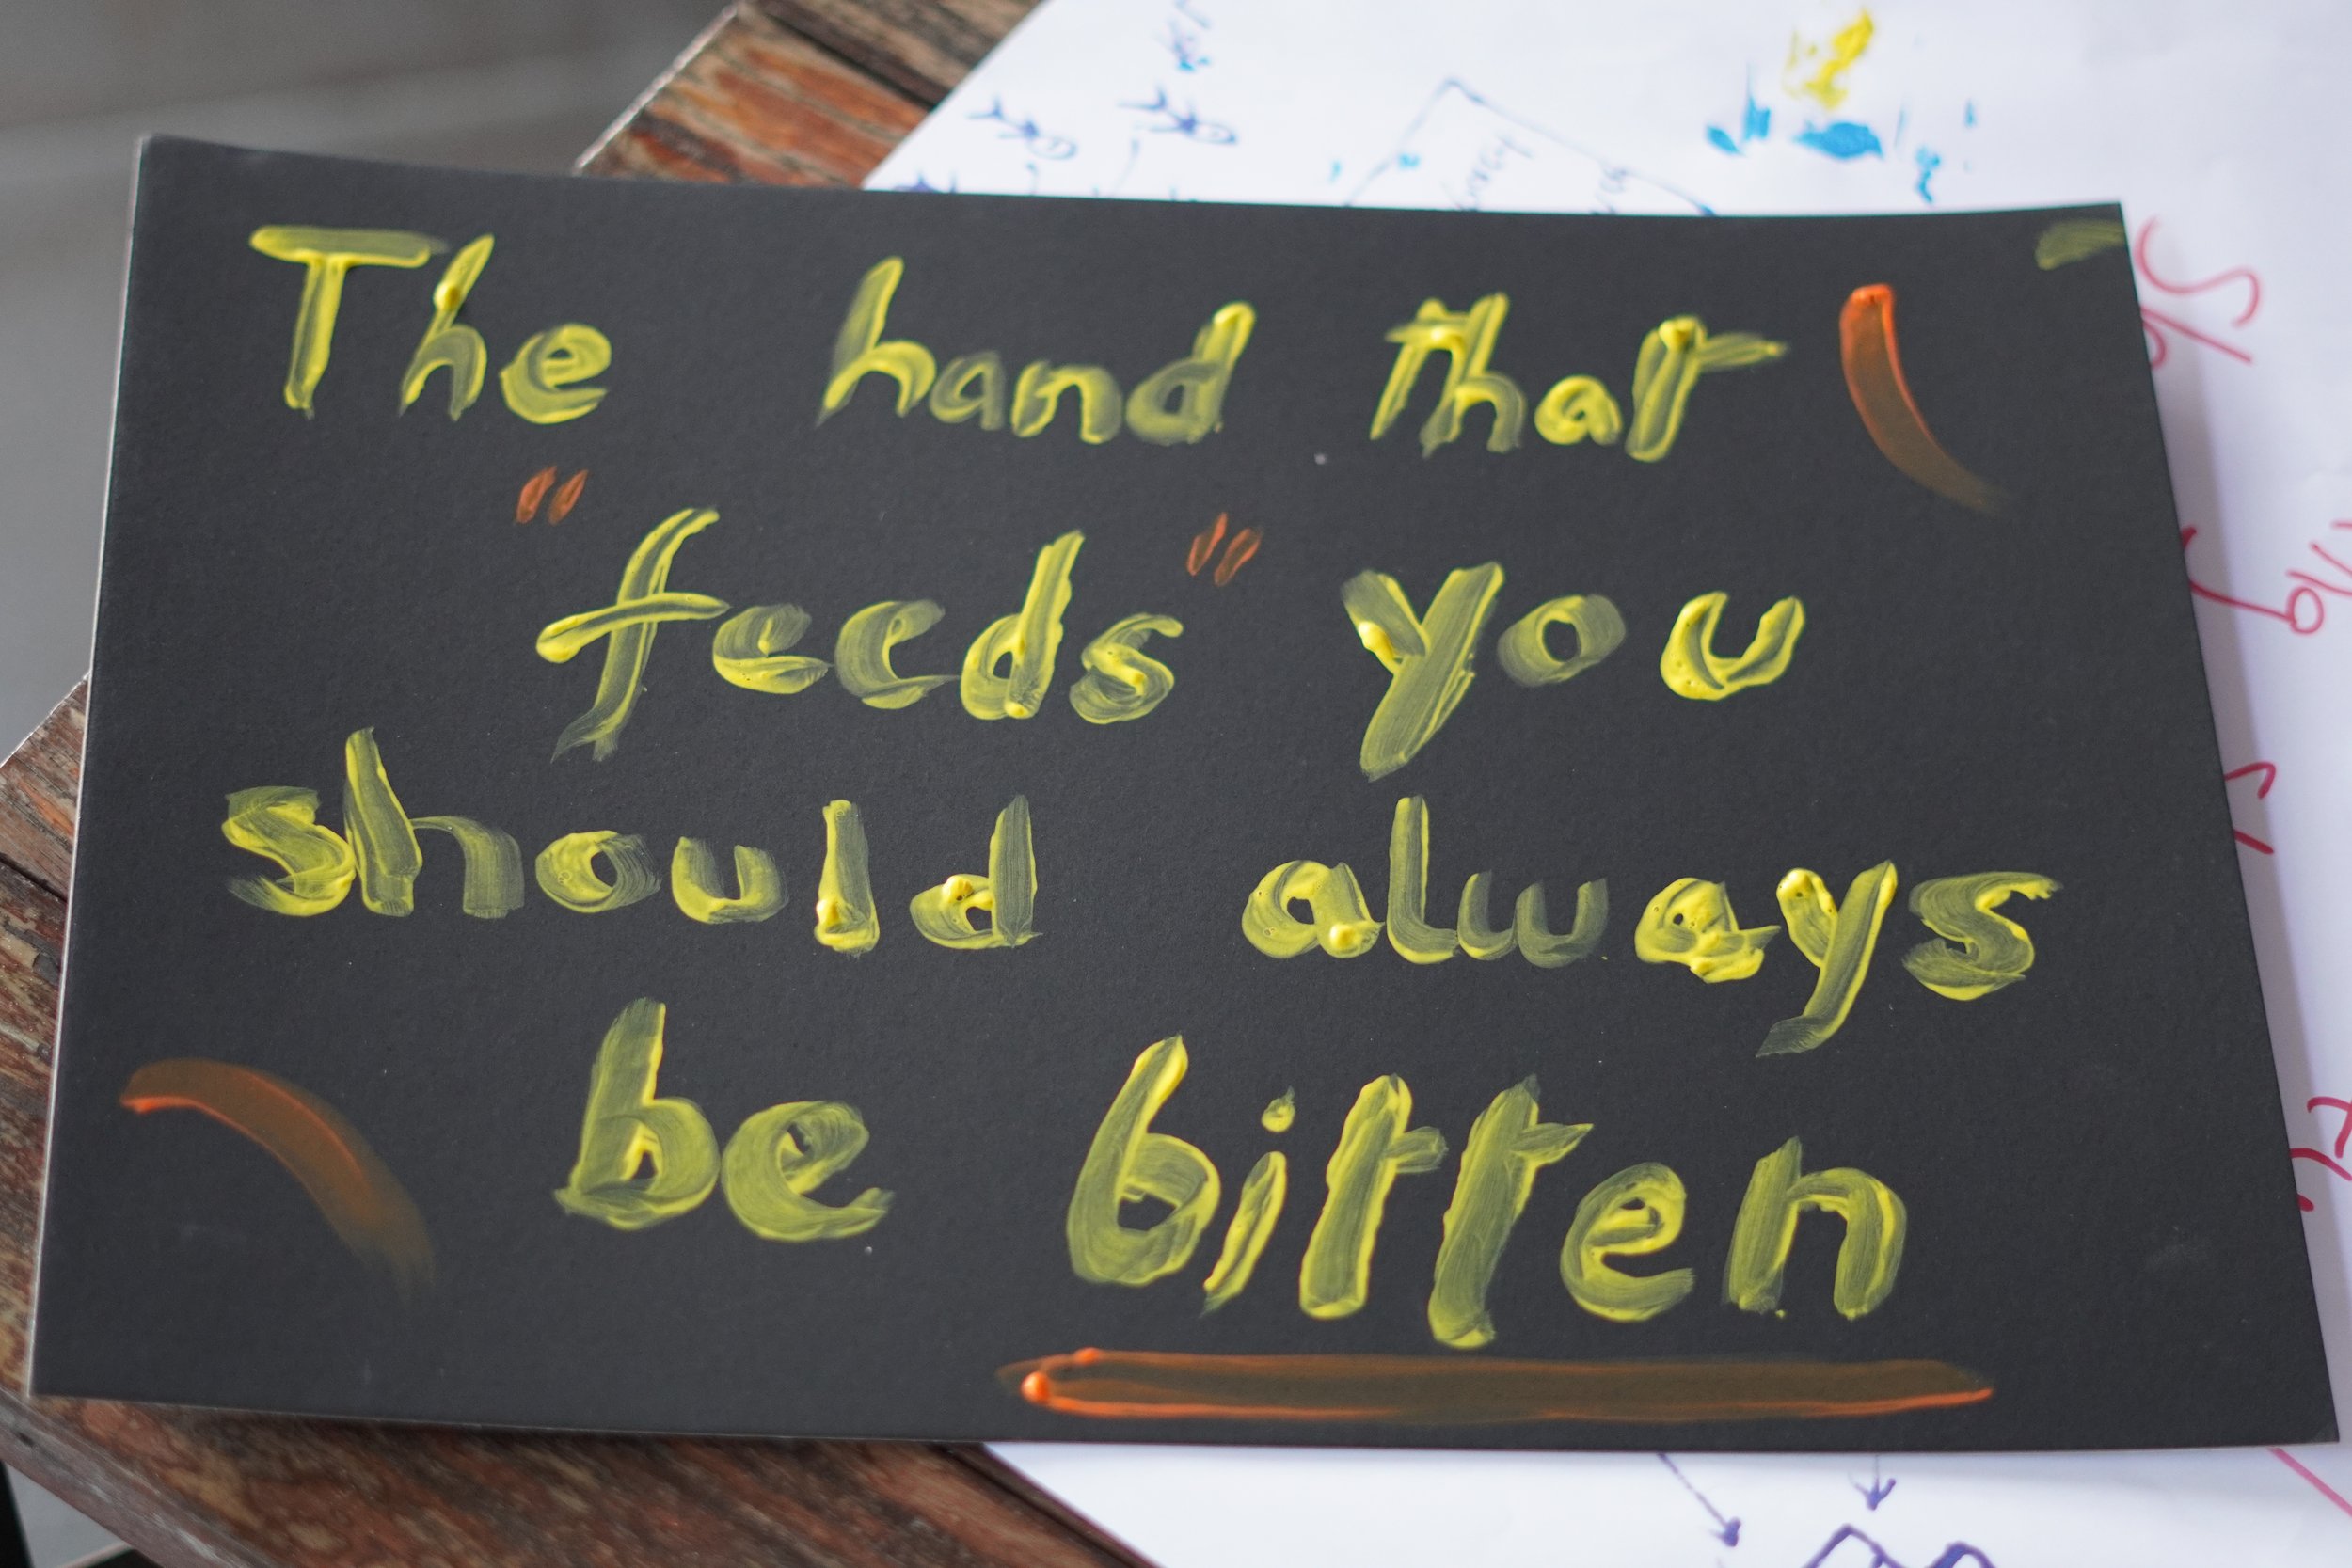 The hand that
"feeds" you
should always
be bitten